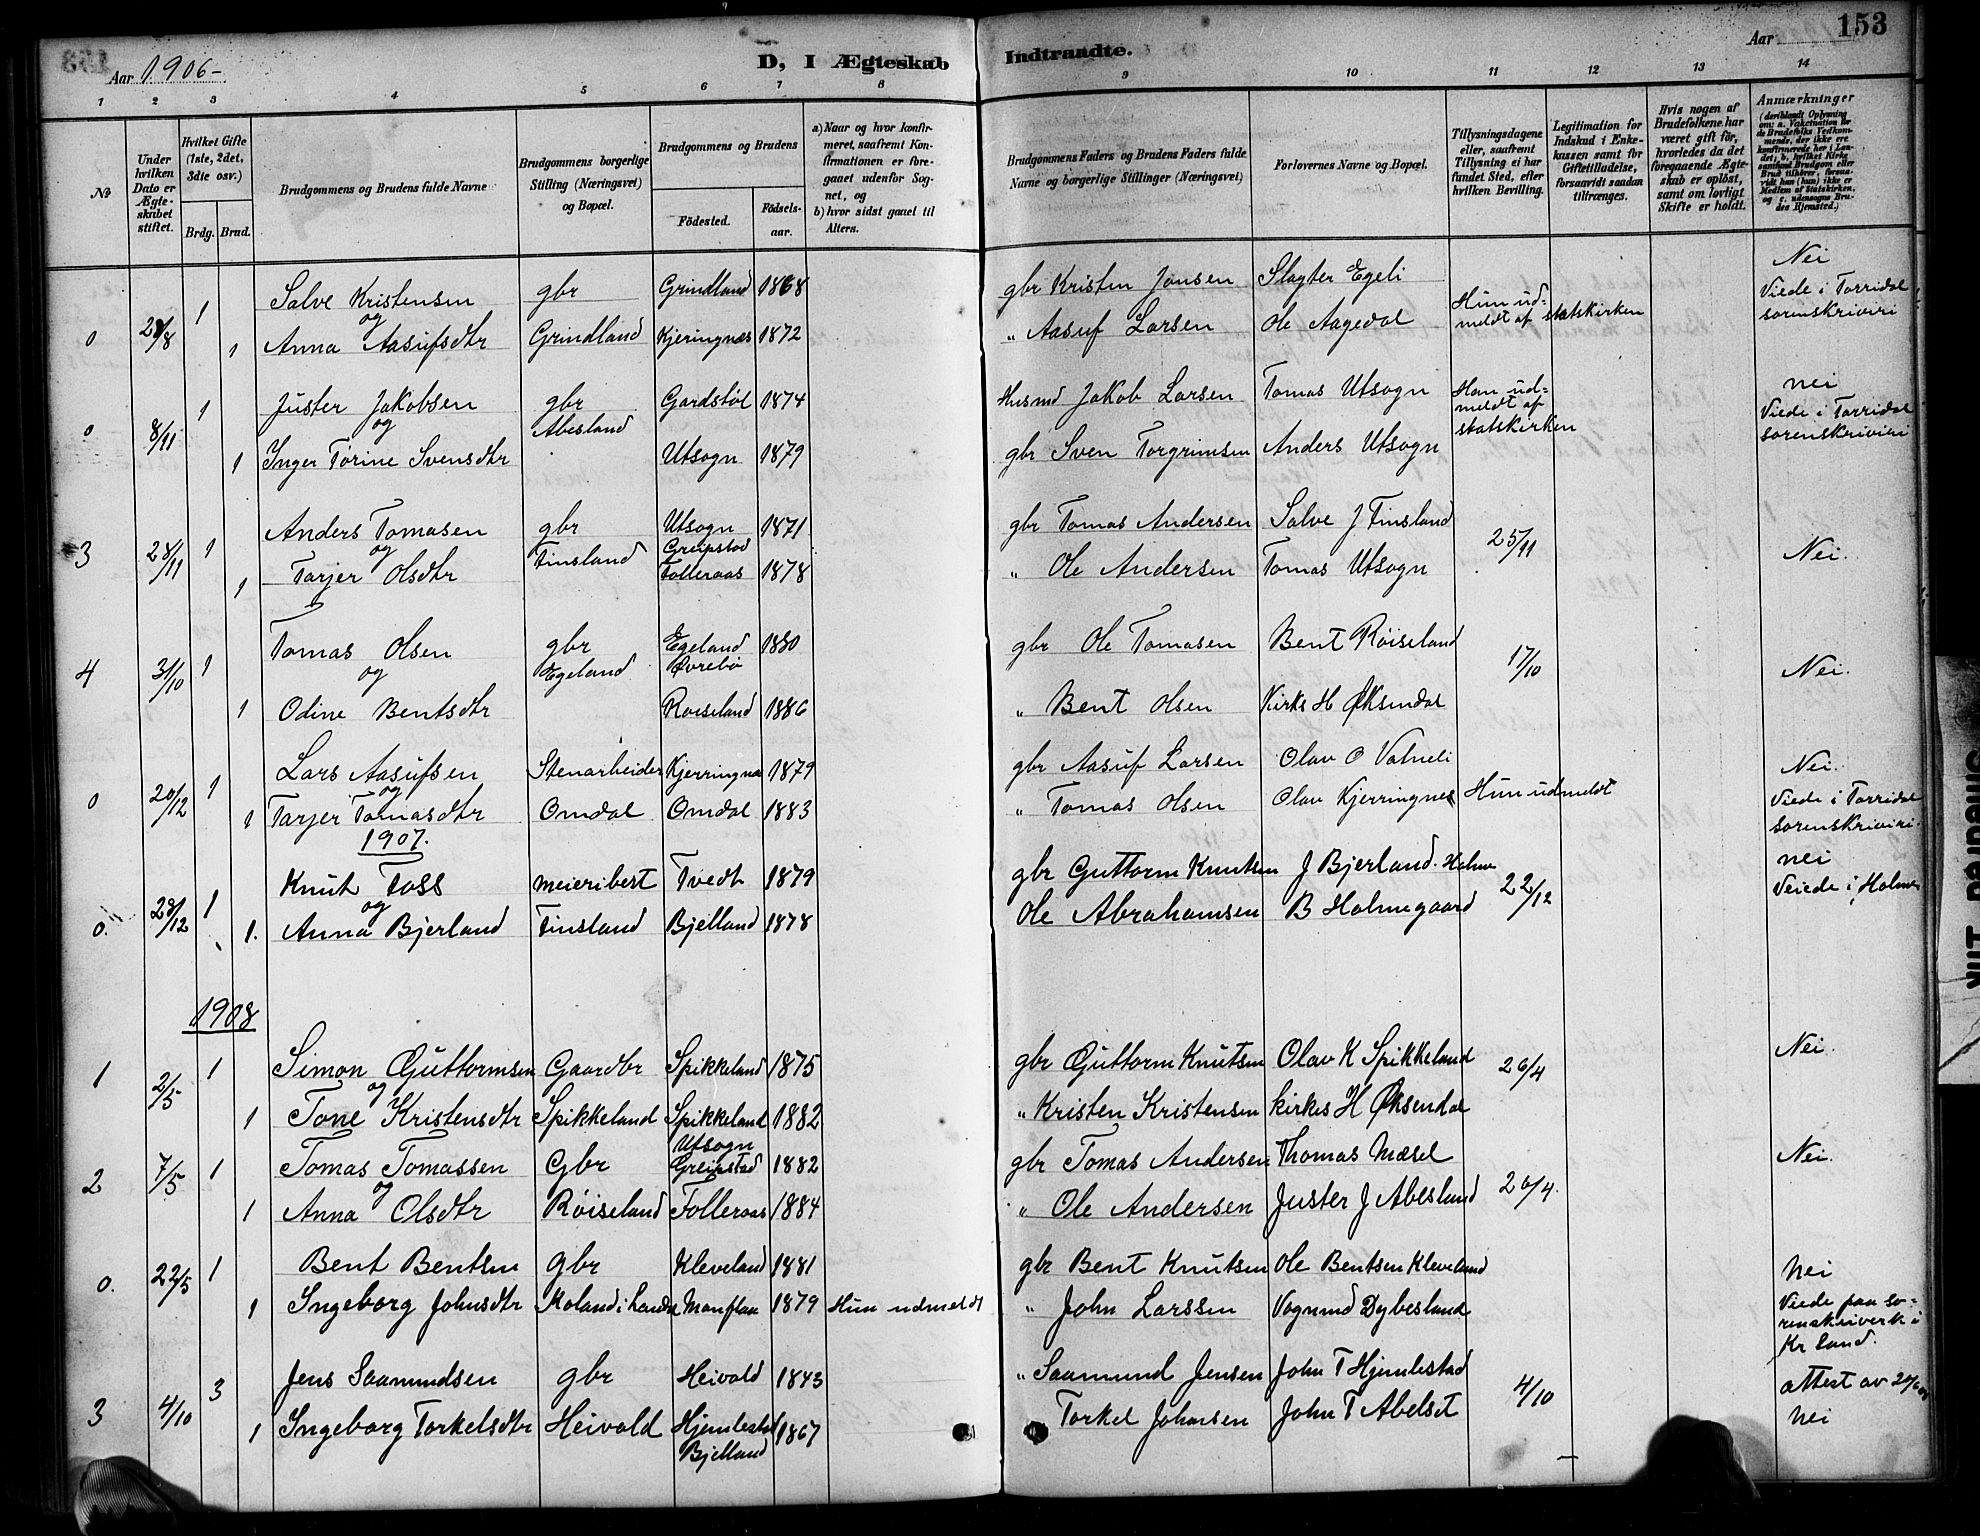 Aar 1906- D, I Ægteskab Indtraadte. Aar 153
1 2 3 4 5 6 7 8 9 10 11 12 13 14
№
Under hvilken Dato er Ægteskabet stiftet.
Hvilket Gifte (1ste, 2det, 3die osv.)
Brdg. Brud.
Brudgommens og Brudens fulde Navne
Brudgommens borgerlige Stilling (Næringsvei) og Bopæl.
Brudgommens og Brudens
Födested. Födsels-aar.
a) Naar og hvor konfirmeret, saafremt Konfirmationen er foregaaet udenfor Sognet, og
b) hvor sidst gaaet til Alters.
Brudgommens Faders og Brudens Faders fulde Navne og borgerlige Stillinger (Næringsvei)
Forlovernes Navne og Bopæl.
Tillysningsdagene eller, saafremt Tillysning ei har fundet Sted, efter hvilken Bevilling.
Legitimation for Indskud i Enkekassen samt for Giftetilladelse, forsaavidt saadan tiltrænges.
Hvis nogen af Brudefolkene har været gift för, hvorledes da det foregaaende Ægteskab er oplöst, samt om lovligt Skifte er holdt.
Anmærkninger (deriblandt Oplysning om: a. Vakcination for de Brudefolks Vedkommende, der ikke ere konfirmerede her i Landet; b. hvilket Kirkesamfund Brudgom eller Brud tilhörer, forsaavidt han (hun) ikke er Medlem af Statskirken, og c. udensogns Brudes Hjemsted.)
Salve Kristensen gbr Grindland 1868 gbr Kristen Jonsen Slagter Egeli Nei
0 28/8 1 og Hun ud= Viede i Torridal
1 Anna Aasufsdtr Grindland Kjeringnæs 1872 " Aasuf Larsen Ole Aagedal meldt af statskirken sorenskriviri
Juster Jakobsen gbr Gardstöl 1874 Husmd Jakob Larsen Tomas Utsogn Han ud= nei
0 8/11 1 og Abesland meldt af Viede i Torridal
1 Inger Torine Svensdtr Utsogn 1879 gbr Sven Torgrimsen Anders Utsogn statskirken sorenskriviri
Anders Tomasen gbr Utsogn 1871 gbr Tomas Andersen Salve J Finsland
3 28/11 1 og Finsland Greipstad 25/11 Nei.
1 Tarjer Olsdtr Folleraas 1878 " Ole Andersen Tomas Utsogn
Tomas Olsen gbr Egeland 1880 gbr Ole Tomasen Bent Røiseland
4 31/10 1 og Egeland Øvrebø 17/10 Nei.
1 Odine Bentsdtr Roiseland 1886 " Bent Olsen Kirks H Øksendal
Lars Aasufsen Stenarbeider Kjerringnæ 1879 gbr Aasuf Larsen Olav O Valneli Nei.
0 20/12 1 og Hun udmeldt Viede i Torridal
1 Tarjer Tomasdtr Omdal Omdal 1883 " Tomas Olsen Olav Kjerringnes sorenskriviri.
1907.
Knut Foss meieribest Tvedt 1879 gbr Guttorm Knutsen J Bjerland. Holme nei
0. 28/12 1 og 22/12 Veiede i Holme
1. Anna Bjerland Finsland Bjelland 1878 Ole Abrahamsen B Holmegaard
1908
1 2/5 1 Simon Guttormsen Gaardbr Spikkeland 1875 gbr Guttorm Knutsen Olav K Spikkeland 26/4 Nei.
og
1 Tone Kristensdtr Spikkeland Spikkeland 1882 " Kristen Kristensen kirkes H Øksendal
Utsogn
2 7/5 1 Tomas Tomassen Gbr Greipstad 1882 gbr Tomas Andersen Thomas Mæsel Nei.
og 26/4.
1 Anna Olsdtr Røiseland Folleraas 1884 " Ole Andersen Juster J Abesland
0. 22/5 1 Bent Bentsen gbr Kleveland 1881 gbr Bent Knutsen Ole Bentsen Kleveland nei
1 Ingeborg Johnsdtr Roland i 1879 Hun udmeldt " John Larssen Vogmund Dybesland Viede paa so=
renskriverk i
Kr sand.
Jens Saamundsen gbr Heivold 1843 " Saamund Jensen John T Hjemlestad attest av
3 4/10 3 4/10
1 Ingeborg Torkelsdtr Heivold Hjemlestad 1867 " Torkel Johnsen John T Abelset nei
Bjelland